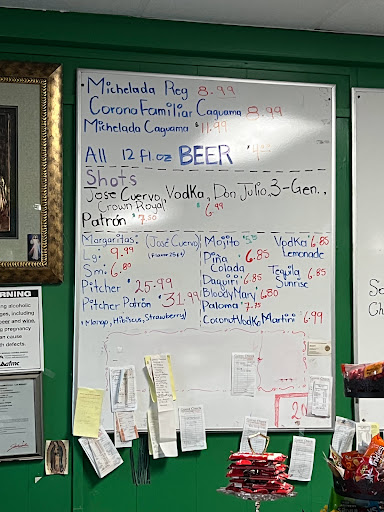 Michelada Reg 8.99
Corona Familiar Caguama 8.99
Michelada Caguama $11.99
All 12 fl.oz BEER
Shots
Jose Cuervo, Vodka, Don Julio, 3-Gen.,
Crown Royal, $6.99
Patrón $7.50
Margaritas: (Jose Cuervo)
Lg: 9.99
Sm: 6.80
Pitcher $25.99
Pitcher Patrón $31.99
(Mango, Hibiscus, Strawberry)
Mojito
Piña Colada 6.85
Daquiri 6.85
Bloody Mary 6.80
Paloma
Coconut Vodka Martini 6.99
Vodka Lemonade 6.85
Tequila Sunrise 6.85
WARNING
ing alcoholic
ages,
beer and wine,
ng pregnancy
an cause
h defects.